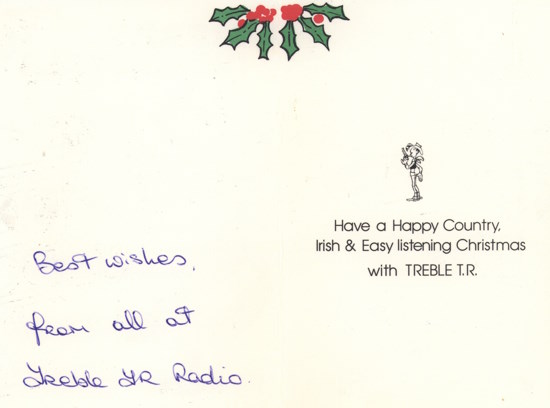 Best wishes,
from all at
Treble TR Radio.
Have a Happy Country,
Irish & Easy listening Christmas
with TREBLE T.R.